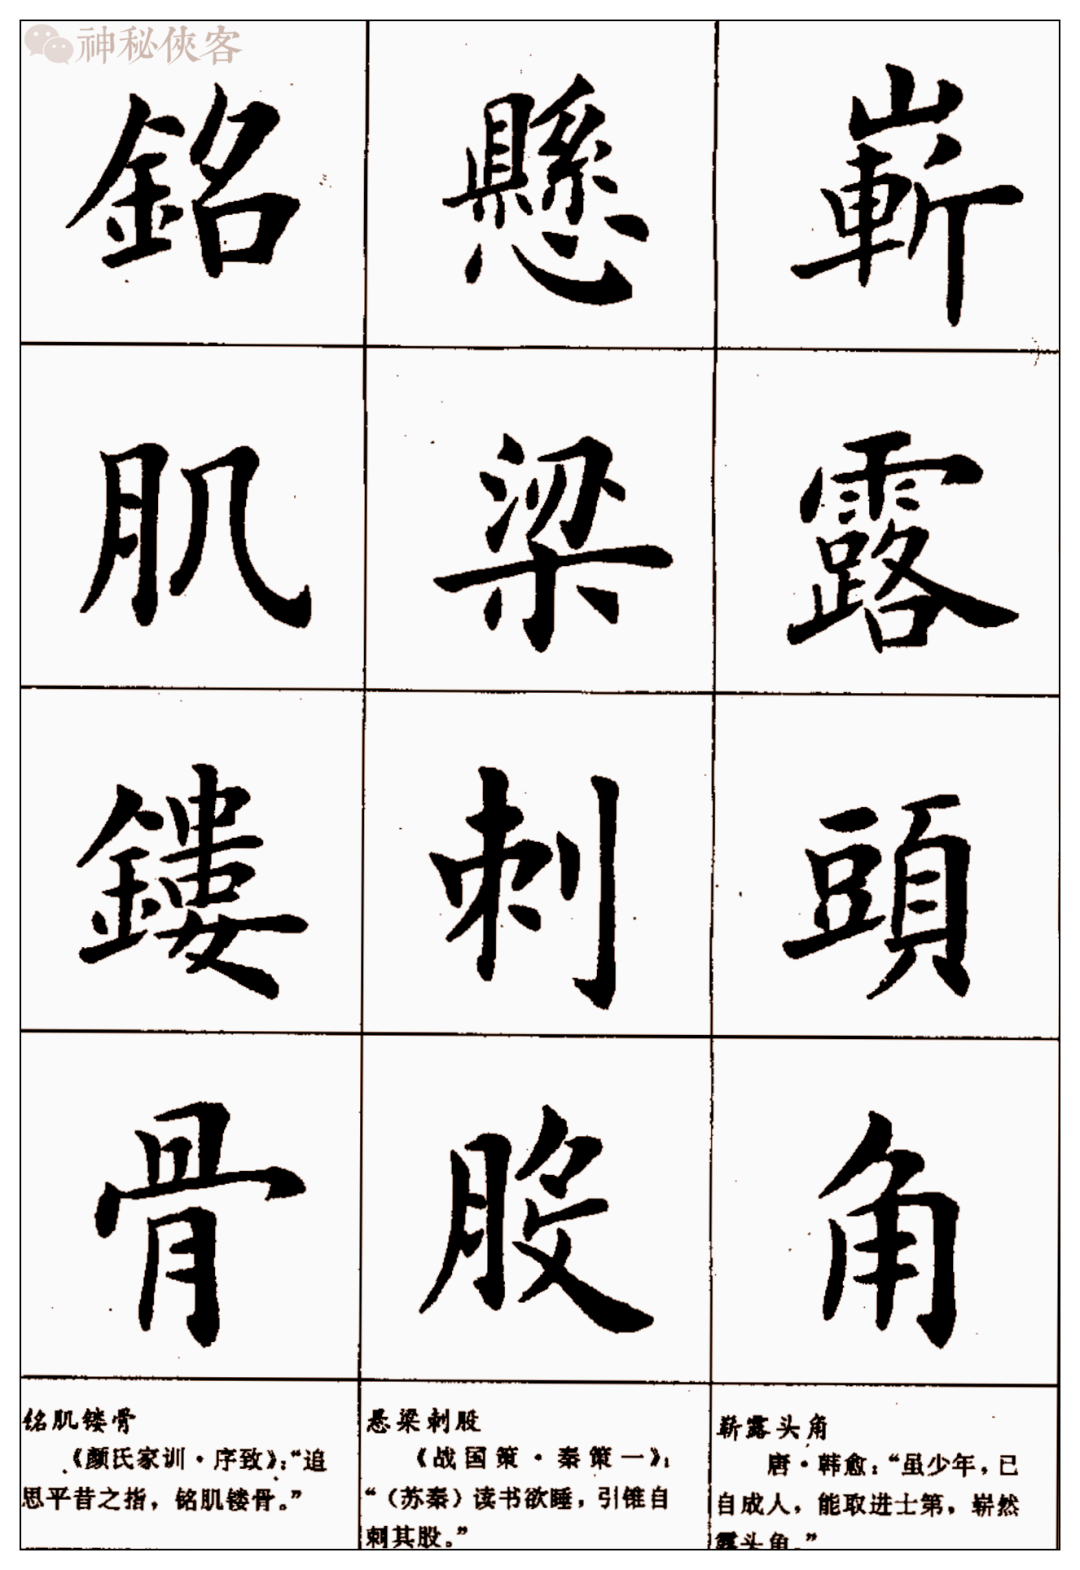 神秘俠客
銘肌鏤骨
懸梁刺股
嶄露頭角
铭肌镂骨
《颜氏家训·序致》：“追
思平昔之指，铭肌镂骨。”
悬梁刺股
《战国策·秦策一》：
“（苏秦）读书欲睡，引锥自
刺其股。”
崭露头角
唐·韩愈：“虽少年，已
自成人，能取进士第，崭然
露头角。”